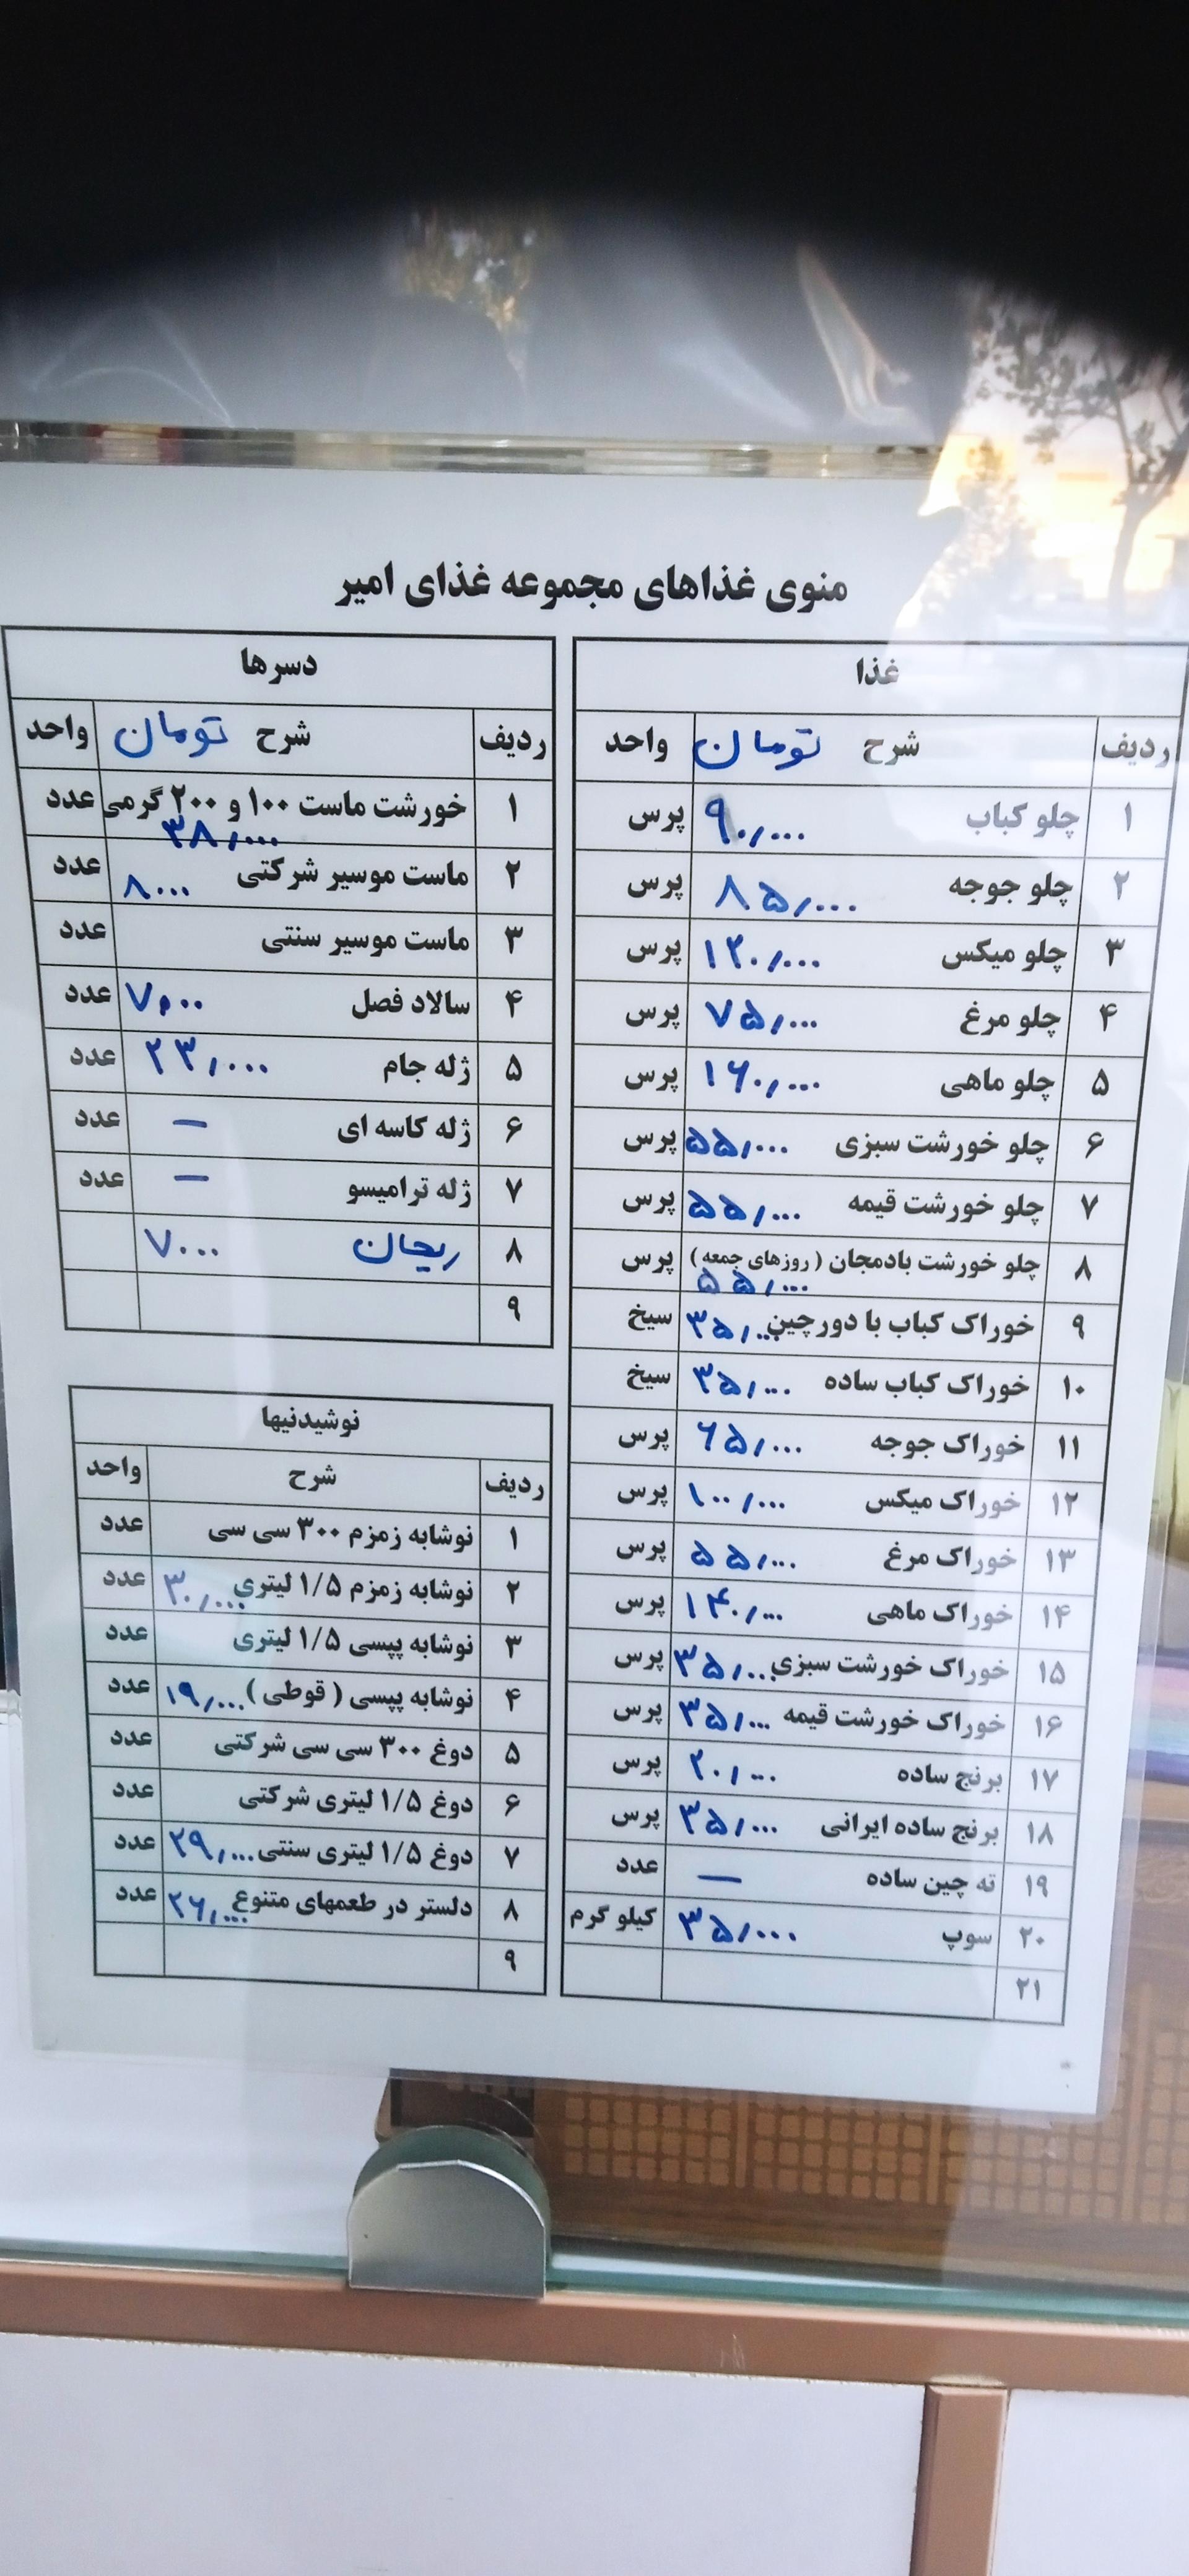 منوی غذاهای مجموعه غذای امیر
غذا
ردیف شرح تومان واحد
۱ چلو کباب ۹۰٫۰۰۰ پرس
۲ چلو جوجه ۸۵٫۰۰۰ پرس
۳ چلو میکس ۱۲۰٫۰۰۰ پرس
۴ چلو مرغ ۷۵٫۰۰۰ پرس
۵ چلو ماهی ۱۶۰٫۰۰۰ پرس
۶ چلو خورشت سبزی ۵۵٫۰۰۰ پرس
۷ چلو خورشت قیمه ۵۵٫۰۰۰ پرس
۸ چلو خورشت بادمجان ( روزهای جمعه ) پرس
۵۵٫۰۰۰
۹ خوراک کباب با دورچین ۳۵٫۰۰۰ سیخ
۱۰ خوراک کباب ساده ۳۵٫۰۰۰ سیخ
۱۱ خوراک جوجه ۶۵٫۰۰۰ پرس
۱۲ خوراک میکس ۱۰۰٫۰۰۰ پرس
۱۳ خوراک مرغ ۵۵٫۰۰۰ پرس
۱۴ خوراک ماهی ۱۴۰٫۰۰۰ پرس
۱۵ خوراک خورشت سبزی ۳۵٫۰۰۰ پرس
۱۶ خوراک خورشت قیمه ۳۵٫۰۰۰ پرس
۱۷ برنج ساده ۲۰٫۰۰۰ پرس
۱۸ برنج ساده ایرانی ۳۵٫۰۰۰ پرس
۱۹ ته چین ساده — عدد
۲۰ سوپ ۳۵٫۰۰۰ کیلو گرم
۲۱
دسرها
ردیف شرح تومان واحد
۱ خورشت ماست ۱۰۰ و ۲۰۰ گرمی عدد
۳۸٫۰۰۰
۲ ماست موسیر شرکتی ۸۰۰۰ عدد
۳ ماست موسیر سنتی عدد
۴ سالاد فصل ۷۰۰۰ عدد
۵ ژله جام ۲۳٫۰۰۰ عدد
۶ ژله کاسه ای — عدد
۷ ژله ترامیسو — عدد
۸ ریحان ۷۰۰۰
۹
نوشیدنیها
ردیف شرح واحد
۱ نوشابه زمزم ۳۰۰ سی سی عدد
۲ نوشابه زمزم ۱/۵ لیتری ۳۰٫۰۰۰ عدد
۳ نوشابه پپسی ۱/۵ لیتری عدد
۴ نوشابه پپسی ( قوطی ) ۱۹٫۰۰۰ عدد
۵ دوغ ۳۰۰ سی سی شرکتی عدد
۶ دوغ ۱/۵ لیتری شرکتی عدد
۷ دوغ ۱/۵ لیتری سنتی ۲۹٫۰۰۰ عدد
۸ دلستر در طعمهای متنوع ۲۶٫۰۰۰ عدد
۹